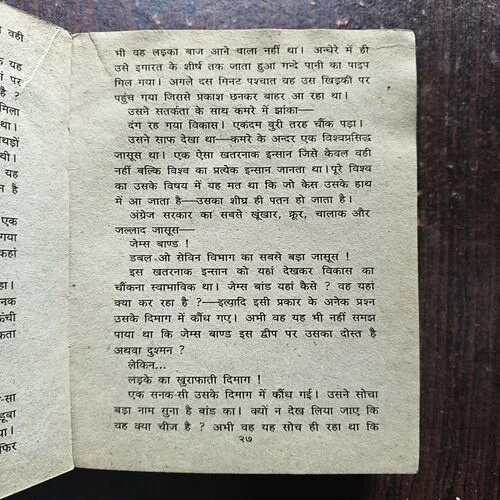 वही
यह
पर
है ?
मिला
था।
थी।
यह
न है
एक
गया
कहां
हा।
नक
कंची
कता
सा-सा
डूबा
या।
फिर
भी वह लड़का बाज आने वाला नहीं था। अन्धेरे में ही
उसे इमारत के शीर्ष तक जाता हुआ गन्दे पानी का पाइप
मिल गया। अगले दस मिनट पश्चात वह उस खिड़की पर
पहुंच गया जिससे प्रकाश छनकर बाहर आ रहा था।
उसने सतर्कता के साथ कमरे में झांका—
दंग रह गया विकास। एकदम बुरी तरह चौंक पड़ा।
उसने साफ देखा था—कमरे के अन्दर एक विश्वप्रसिद्ध
जासूस था। एक ऐसा खतरनाक इन्सान जिसे केवल वही
नहीं बल्कि विश्व का प्रत्येक इन्सान जानता था। पूरे विश्व
का उसके विषय में यह मत था कि जो केस उसके हाथ
में आ जाता है—उसका शीघ्र ही पतन हो जाता है।
अंग्रेज सरकार का सबसे खूंखार, क्रूर, चालाक और
जल्लाद जासूस—
जेम्स बाण्ड !
डबल ओ सेविन विभाग का सबसे बड़ा जासूस !
इस खतरनाक इन्सान को यहां देखकर विकास का
चौंकना स्वाभाविक था। जेम्स बांड यहां कैसे ? वह यहां
क्या कर रहा है ?—इत्यादि इसी प्रकार के अनेक प्रश्न
उसके दिमाग में कौंध गए। अभी वह यह भी नहीं समझ
पाया था कि जेम्स बाण्ड इस द्वीप पर उसका दोस्त है
अथवा दुश्मन ?
लेकिन...
लड़के का खुराफाती दिमाग !
एक सनक-सी उसके दिमाग में कौंध गई। उसने सोचा
बड़ा नाम सुना है बांड का। क्यों न देख लिया जाए कि
वह क्या चीज है ? अभी वह यह सोच ही रहा था कि
२७